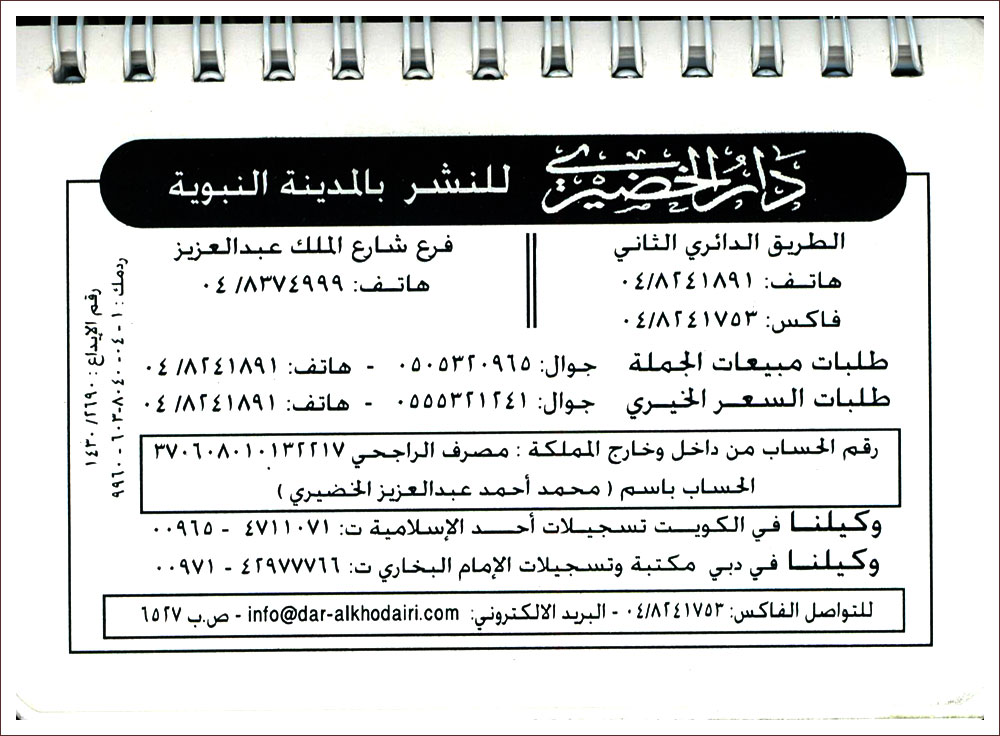 دار الخضيري للنشر بالمدينة النبوية
الطريق الدائري الثاني
هاتف: ٠٤/٨٢٤١٨٩١
فاكس: ٠٤/٨٢٤١٧٥٣
فرع شارع الملك عبدالعزيز
هاتف: ٠٤/٨٣٧٤٩٩٩
طلبات مبيعات الجملة جوال: ٠٥٠٥٣٢٠٩٦٥ - هاتف: ٠٤/٨٢٤١٨٩١
طلبات السعر الخيري جوال: ٠٥٥٥٣٢١٢٤١ - هاتف: ٠٤/٨٢٤١٨٩١
رقم الحساب من داخل وخارج المملكة : مصرف الراجحي ٣٧٠٦٠٨٠١٠١٣٢٢١٧
الحساب باسم ( محمد أحمد عبدالعزيز الخضيري )
وكيلنا في الكويت تسجيلات أحد الإسلامية ت: ٤٧١١٠٧١ - ٠٠٩٦٥
وكيلنا في دبي مكتبة وتسجيلات الإمام البخاري ت: ٤٢٩٧٧٧٦٦ - ٠٠٩٧١
للتواصل الفاكس: ٠٤/٨٢٤١٧٥٣ - البريد الالكتروني: info@dar-alkhodairi.com - ص.ب ٦٥٢٧
رقم الإيداع : ١٤٣٠/٢٦٩٠
ردمك : ١ - ٠٤ - ٨٠٤٠ - ٦٠٣ - ٩٩٦٠